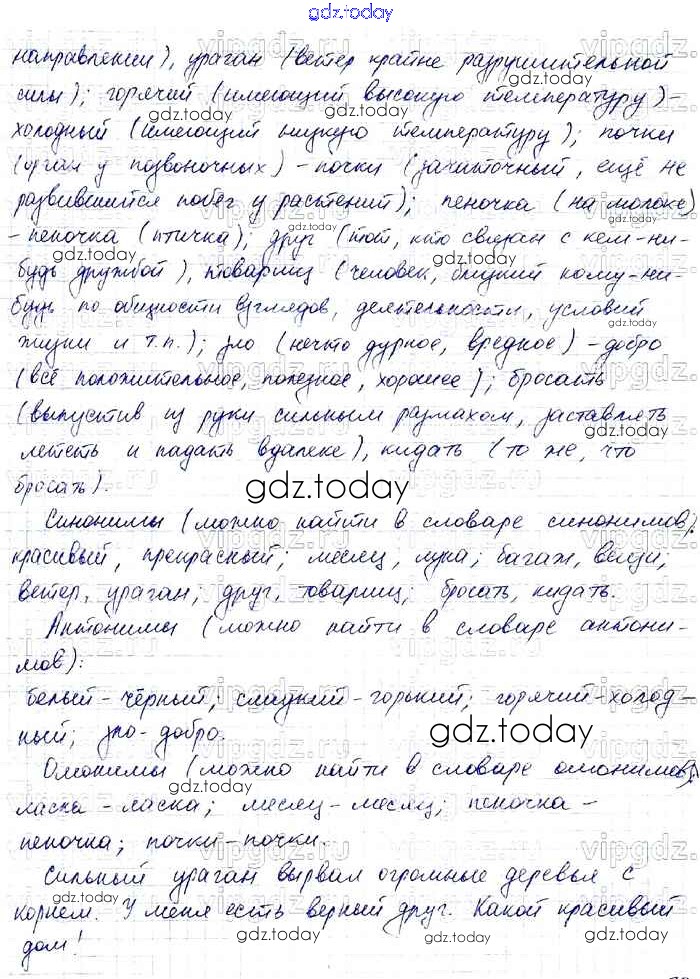 gdz.today
направлении), ураган (ветер крайне разрушительной
силы); горячий (имеющий высокую температуру) -
холодный (имеющий низкую температуру); почки
(орган у позвоночных) - почки (зачаточный, ещё не
развившийся побег у растений); пеночка (на молоке)
- пеночка (птичка); друг (тот, кто связан с кем-ни-
будь дружбой), товарищ (человек, близкий кому-ни-
будь по общности взглядов, деятельности, условий
жизни и т.п.); зло (нечто дурное, вредное) - добро
(всё положительное, полезное, хорошее); бросать
(выпустив из руки сильным размахом, заставлять
лететь и падать вдалеке), кидать (то же, что
бросать).
gdz.today
Синонимы (можно найти в словаре синонимов):
красивый, прекрасный; месяц, луна; багаж, вещи;
ветер, ураган; друг, товарищ; бросать, кидать.
Антонимы (можно найти в словаре антони-
мов):
белый - чёрный; сладкий - горький; горячий - холод-
ный; зло - добро.
gdz.today
Омонимы (можно найти в словаре омонимов):
ласка - ласка; месяц - месяц; пеночка -
пеночка; почки - почки.
Сильный ураган вырвал огромные деревья с
корнем. У меня есть верный друг. Какой красивый
дом!
gdz.today